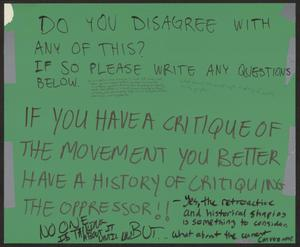 DO YOU DISAGREE WITH
ANY OF THIS?
IF SO PLEASE WRITE ANY QUESTIONS
BELOW.
IF YOU HAVE A CRITIQUE OF
THE MOVEMENT YOU BETTER
HAVE A HISTORY OF CRITIQUING
THE OPPRESSOR!!
- Yes, the retroactive
and historical shaping
is something to consider.
NO ONE
BUT...
what about the current